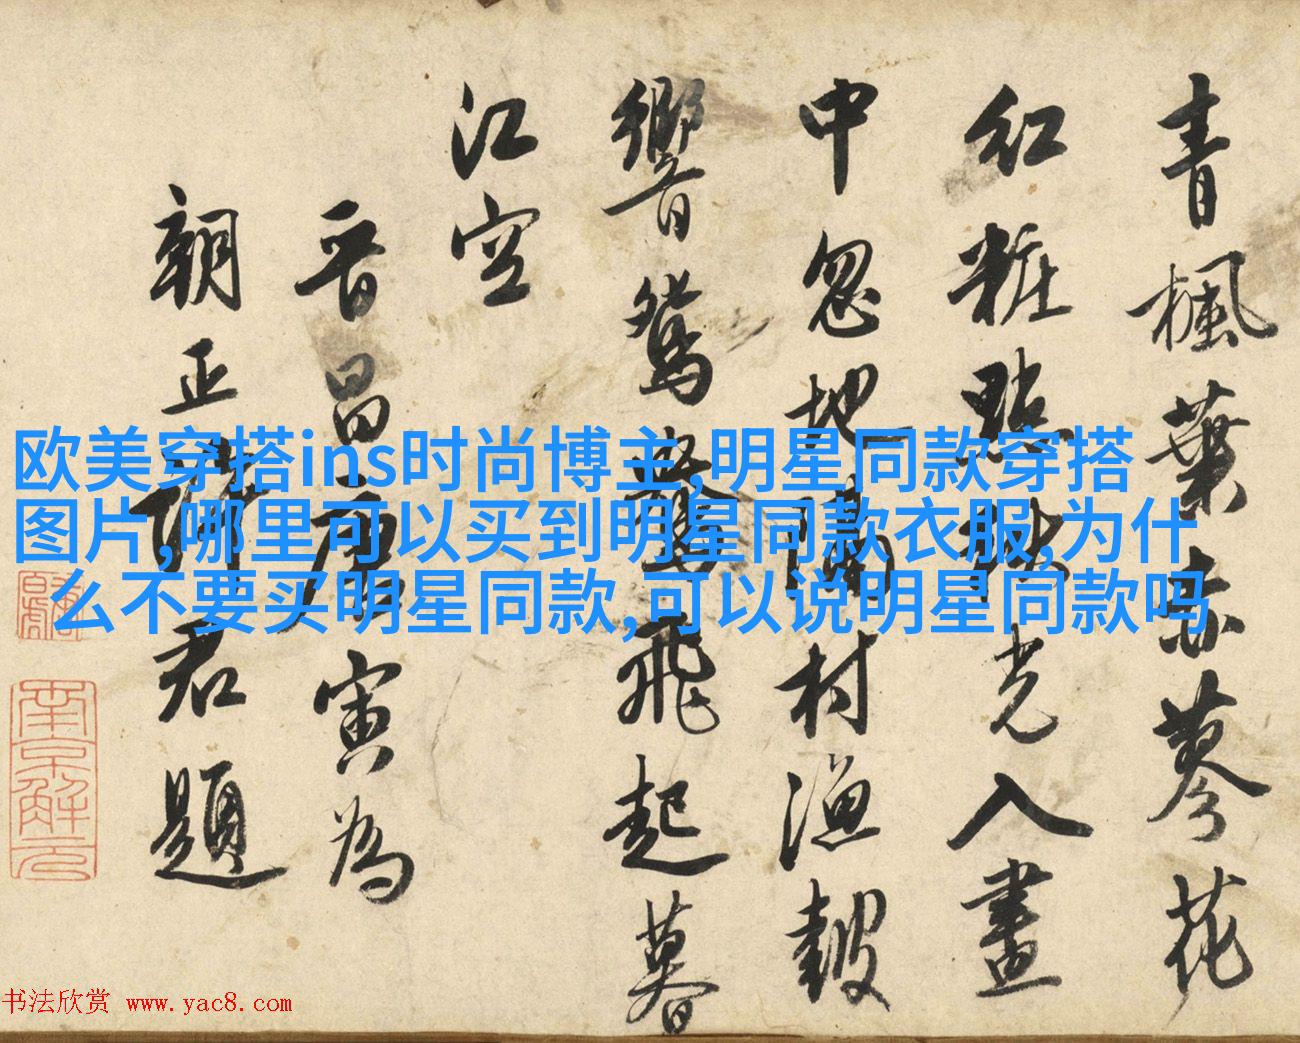 青楓葉赤蓼花
紅粧點秋光入畫
中忽地隔村漁鼓
響鴛鴦飛起暮
江空
晋昌唐寅為
朝正謝君題
欧美穿搭ins时尚博主,明星同款穿搭
图片,哪里可以买到明星同款衣服,为什
么不要买明星同款,可以说明星同款吗
南京解元
书法欣赏 www.yac8.com